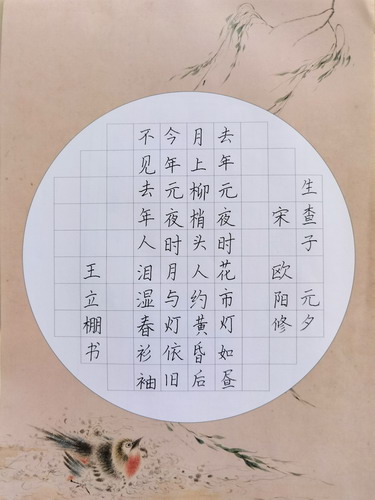 生查子 元夕
宋 欧阳修
去年元夜时花市灯如昼
月上柳梢头人约黄昏后
今年元夜时月与灯依旧
不见去年人泪湿春衫袖
王立棚书